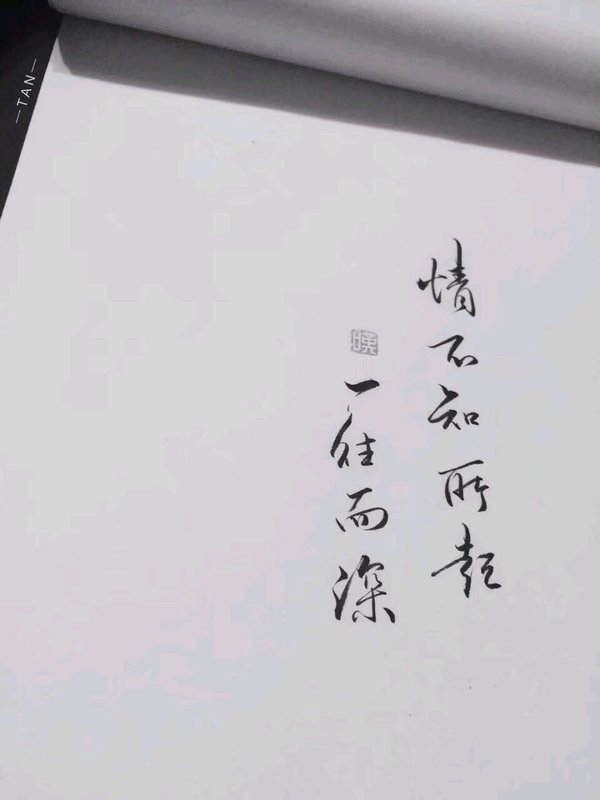 情不知所起
一往而深
TAN